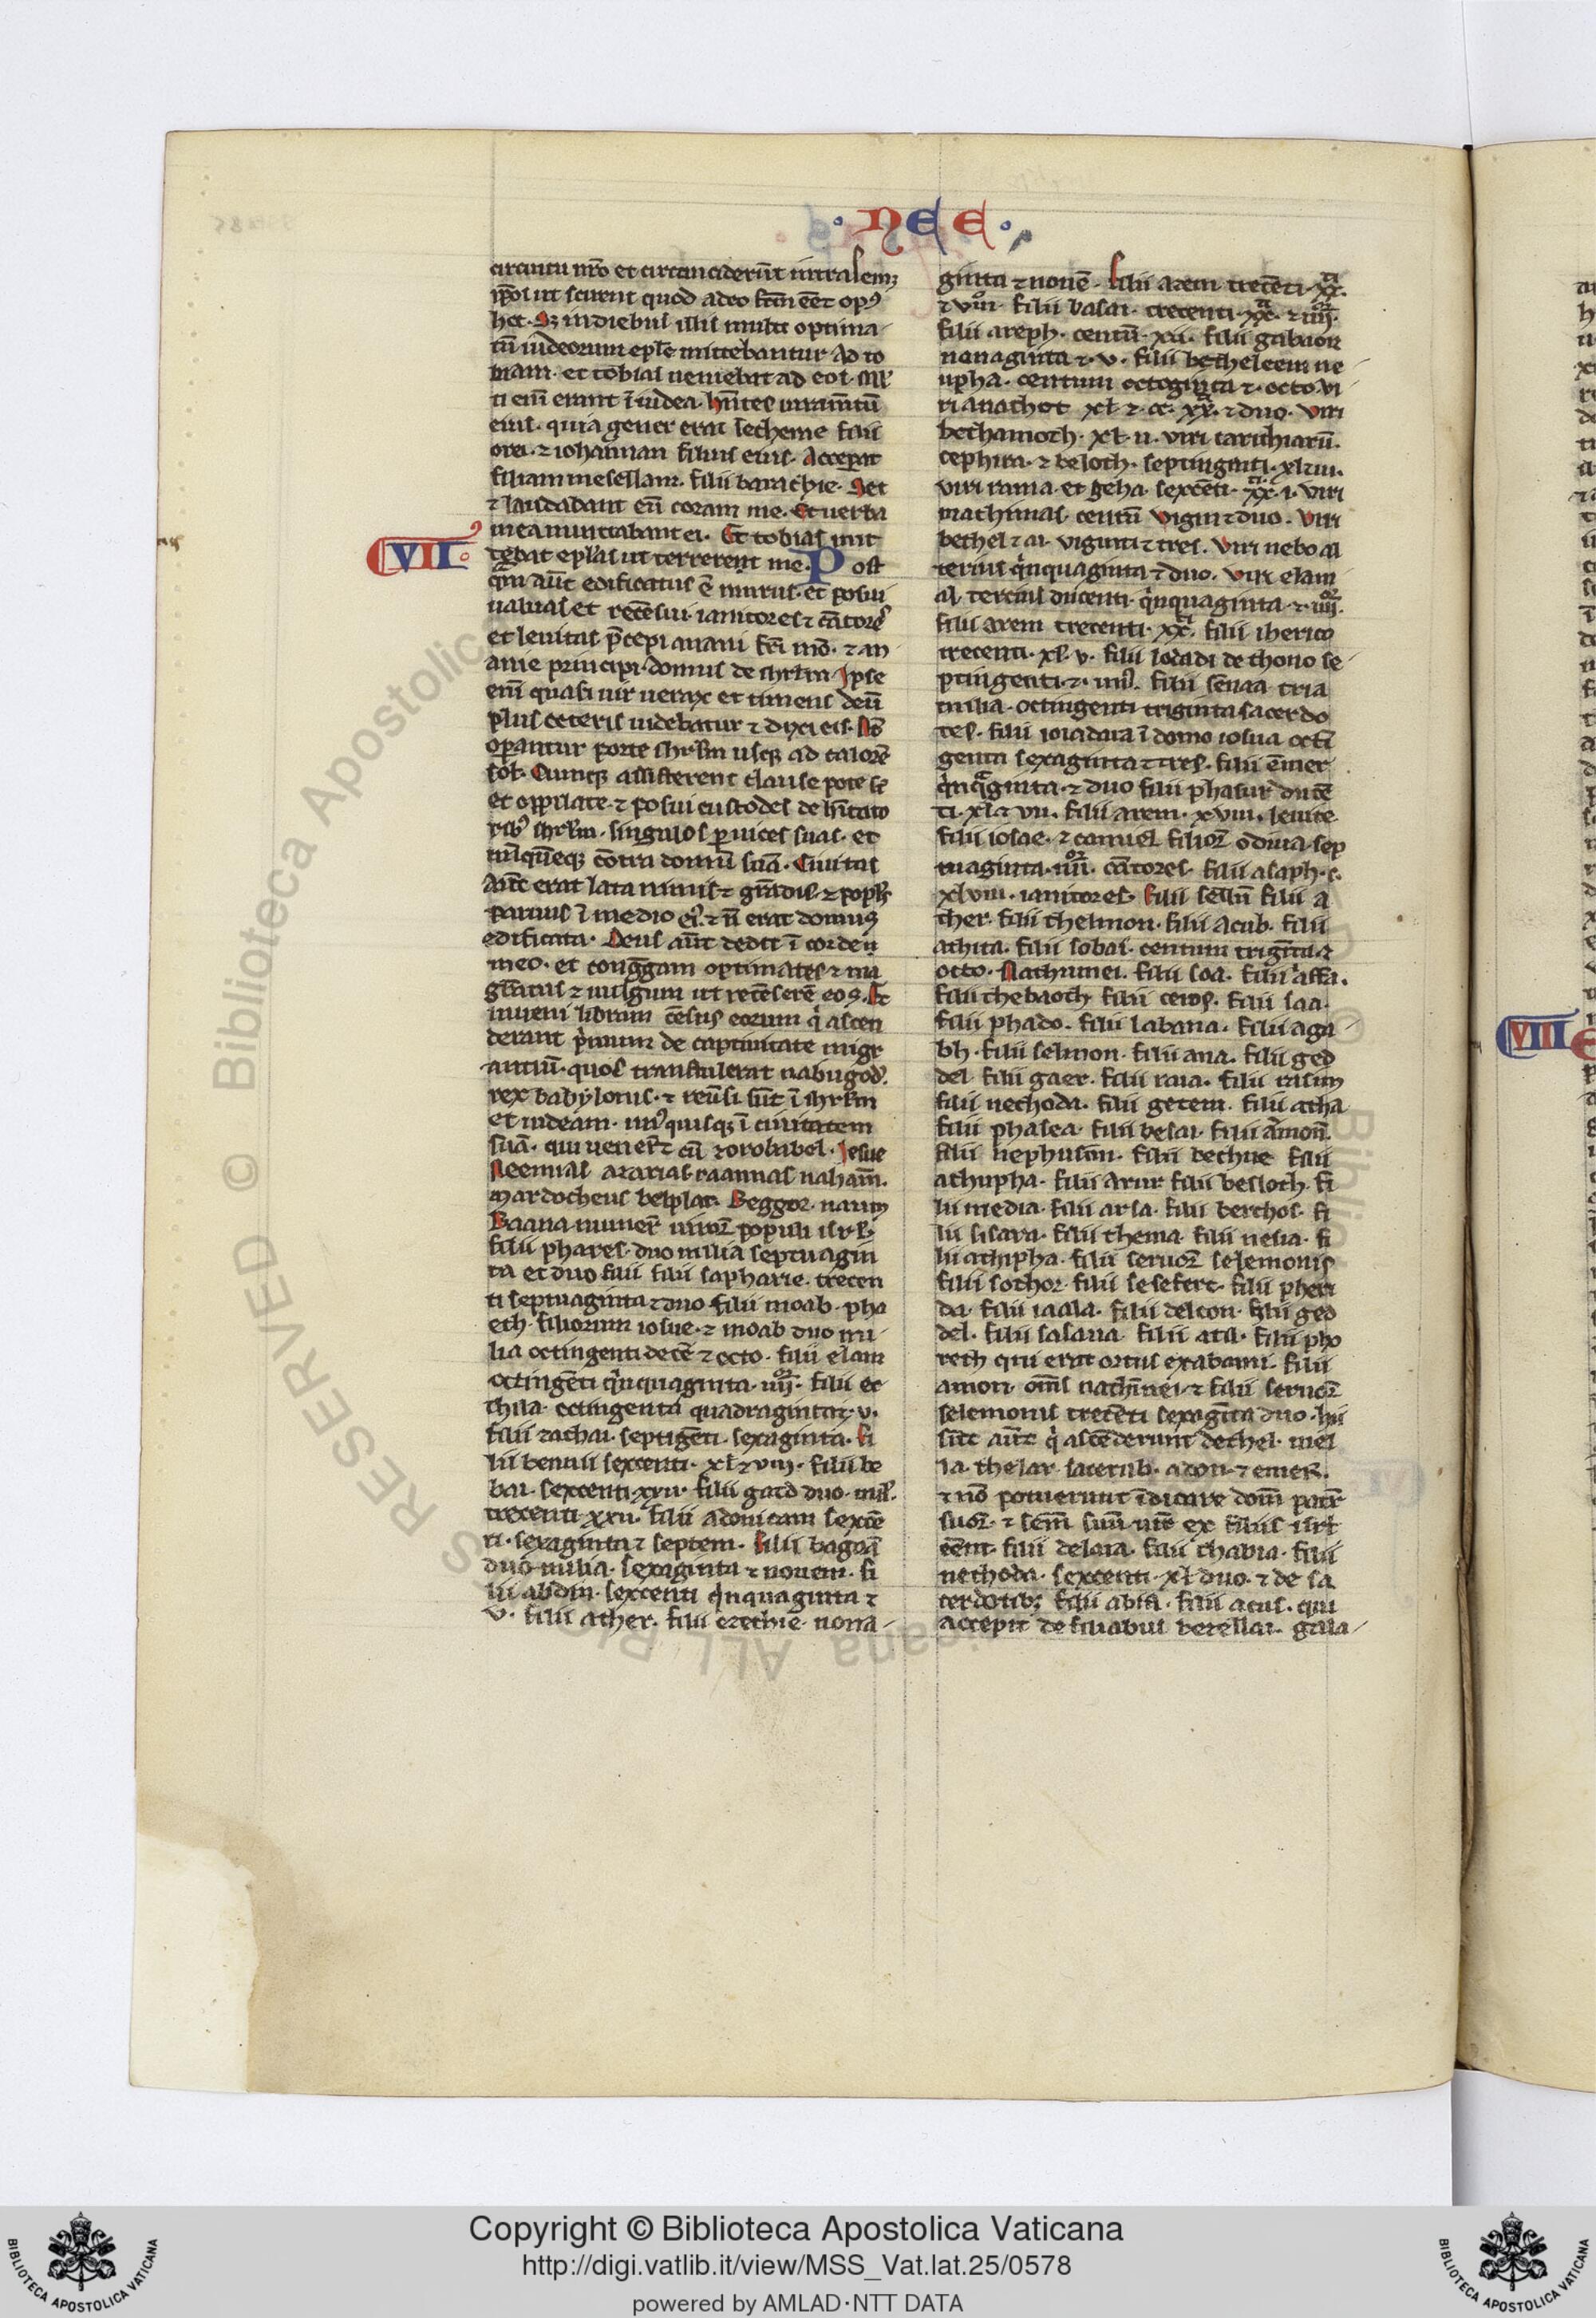 · NEE ·
circuitu nr̄o et circunciderūt intra semꝫ
ip̄os ut scirent quod a deo fc̄m eēt opꝰ
hoc. Sꝫ in diebus illis multi optima
tū iudeorum epl̄e mittebantur ad to
biam. et tobias ueniebat ad eos. Ml̄
ti eni᷑ erant ī iudea. hn̄tes iuram̄tū
eius. quia gener erat secheme filii
orei. ⁊ iohannan filius eius. Acceperat
filiam mesellam. filii barachie. Set
⁊ laudabant eū coram me. Et uerba
mea nuntiabant ei. Et tobias mit
VII
tebat epl̄as ut terrerent me. Post
qͣm aūt edificatus ē murus. et posui
ualuas et recēsui. ianitores ⁊ cātores
et leuitas p̄cepi anani fr̄i mō. ⁊ an
anie principi domus de ihrl̄m Ipse
eni᷑ quasi uir uerax et timens deū
plus ceteris uidebatur ⁊ dixi eis. Nō
operiantur porte ihrl̄m usqꝫ ad calorē
sol̄. Cumqꝫ assisterent clause porte sūt
et oppilate. ⁊ posui custodes de hītato
ribꝰ ihrl̄m. singulos p̱ uices suas. et
unūquēqꝫ cōtra domū suā. Ciuitas
aūt erat lata nimis ⁊ grādis. ⁊ popl̄s
paruus ī medio eiꝰ. ⁊ n̄ erat domus
edificata. Deus aūt dedit ī corde
meo. et congͣgaui optimates ⁊ ma
gr̄atus ⁊ uulgum ut recēserē eos. Et
inueni librum cēsus eorum qͥ ascen
derant pͥmum de captiuitate migr
antiū. quos transtulerat nabugod̄.
rex babylonis. ⁊ reūsi sūt ī ihrl̄m
et iudeam. unꝰquisqꝫ ī ciuitatem
suā. qui uenerūt cū zorobabel. Iesue
Neemias azarias raamias nahām.
mardocheus belpsar. Beggor. naum
Baana numer᷑ uiroꝝ populi isrl̄.
filii phares. duo milia septuagin
ta et duo filii filii saphatie. trecen
ti septuaginta ⁊ duo filii moab. pha
eth. filiorum iosue. ⁊ moab duo mi
lia octingenti decē ⁊ octo. filii elam
octingēti qͥnquaginta. iiii. filii ec
thua. octingenti quadraginta ⁊. v.
filii zachai. septigēti. sexaginta. fi
lii bennii sexcenti. xl ⁊ viii. filii be
bai. sexcenti. xxii. filii gatd duo. mil̄.
trecenti. xxii. filii adonicam sexcē
ti. sexaginta ⁊ septem. filii bagoā
duo milia. sexaginta ⁊ nouem. fi
lii abdin. sexcenti qͥnquaginta ⁊
v. filii ather. filii ezethie. nona
ginta ⁊ nouē. filii azem trecēti. xx.
⁊ viii. filii basai. trecenti. xx. ⁊ iiii.
filii areph. centū. xii. filii gabaon
nonaginta ⁊. v. filii betheleem ne
upha. centum octoginta ⁊. octo. vi
ri anathot xl ⁊. cc. xx. ⁊ duo. viri
bethamoth. xl. ii. viri cariathiarū.
cephira. ⁊ beloth. septinginti. xl ⁊ iii.
viri rama. et geba. sexcēti. xx. i. viri
machimas. centū viginti ⁊ duo. viri
bethel ⁊ ai. viginti ⁊ tres. viri nebo al
terius qͥnquaginta ⁊ duo. viri elam
al. tercius ducenti. qͥnquaginta. ⁊. iiii.
filii arem trecenti. xx. filii iherico
trecenti. xl. v. filii iodadi de thono se
ptingenti. ⁊. mil̄. filii sēnaa tria
milia. octingenti triginta sacerdo
tes. filii ioiadaia ī domo iosua octī
genti sexaginta ⁊ tres. filii ēmer
qͥnqͣginta. ⁊ duo filii phasur ducē
ti. xl ⁊ vii. filii arem. xviii. leuite
filii iosae. ⁊ camuel filioꝝ oduia sep
tuaginta. iiii. cātores. filii asaph. c.
xlviii. ianitores. filii sellū filii a
ther. filii thelmon. filii acub. filii
athita. filii sobai. centum trigīta ⁊
octo. Nathinnei. filii soa. filii assa.
filii thebaoth filii ceros. filii saa.
filii phado. filii labana. filii aga
bh. filii selmon. filii ana. filii ged
del. filii gaer. filii raia. filii rasim
filii nethoda. filii getem. filii atha
filii phasea. filii besai. filii amonī.
filii nephusim. filii bechue filii
athupha. filii arur filii besloth. fi
lii media. filii arsa. filii berchos. fi
lii sisara. filii thema. filii nesia. fi
lii athipha. filii seruoꝝ selemonis
filii sothor. filii sesefert. filii pheri
da. filii iaala. filii delcon. filii ged
del. filii safaria. filii atil. filii pho
reth qui erat ortus ex abami. filii
amon. om̄s nathīnei. ⁊ filii seruoꝝ
selemonis trecēti sexagīta duo. hii
sūt aūt qͥ ascēderunt de thel. mel
la. thelar. sacerub. adon. ⁊ emer.
⁊ nō potuerunt īdicare domū patꝝ
suoꝝ. ⁊ semē suū utrū ex filiis isrl̄
eēnt. filii delaia. filii thabia. filii
nethoda. sexcenti. xl duo. ⁊ de sa
cerdotibꝫ filii abia. filii acus. qui
accepit de filiabus berellai. gala
VIII
Copyright © Biblioteca Apostolica Vaticana
http://digi.vatlib.it/view/MSS_Vat.lat.25/0578
powered by AMLAD·NTT DATA
BIBLIOTECA APOSTOLICA VATICANA
BIBLIOTECA APOSTOLICA VATICANA